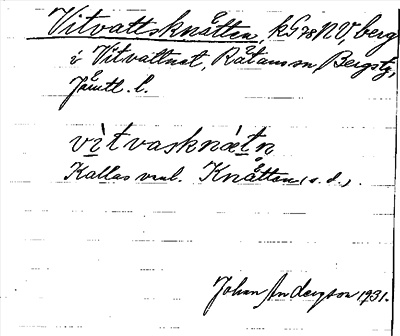 Vitvattsknåtten, kG78NV, berg
i Vitvattnet, Rätans sn, Bergstg,
Jämtl. l.
vìtvasknætn
Kallas vanl. Knåtten (s. d.).
Johan Anderzson 1931.